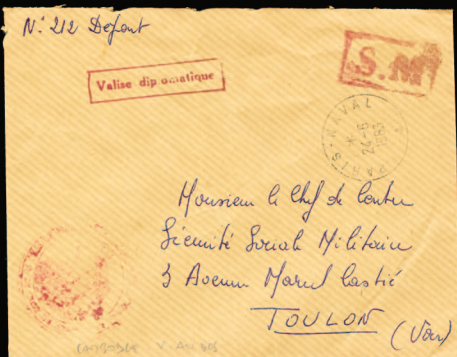 N° 212 Defont
Valise diplomatique
S.M
PARIS-NAVAL
24-6
1963
Monsieur le Chef de Centre
Sécurité Sociale Militaire
3 Avenue Marcel Castié
TOULON (Var)
CAMBODGE